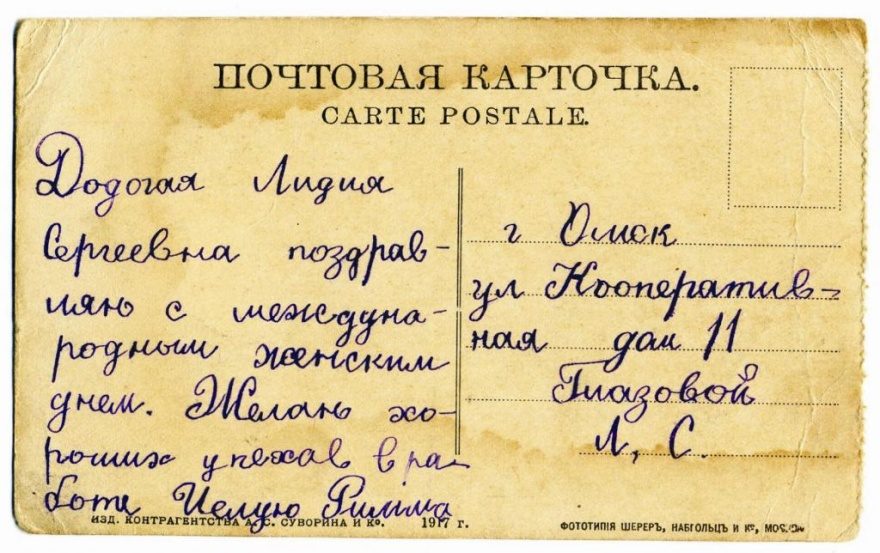 ПОЧТОВАЯ КАРТОЧКА.
CARTE POSTALE.
Додогая Лидия
Сергеевна поздрав-
ляю с междуна-
родным женским
днем. Желаю хо-
роших успехов в ра-
боте Целую Римма
г Омск
ул Кооператив-
ная дом 11
Глазовой
Л, С.
ИЗД. КОНТРАГЕНТСТВА А. С. СУВОРИНА И Ко. 1917 г.
ФОТОТИПІЯ ШЕРЕРЪ, НАБГОЛЬЦЪ И Ко,